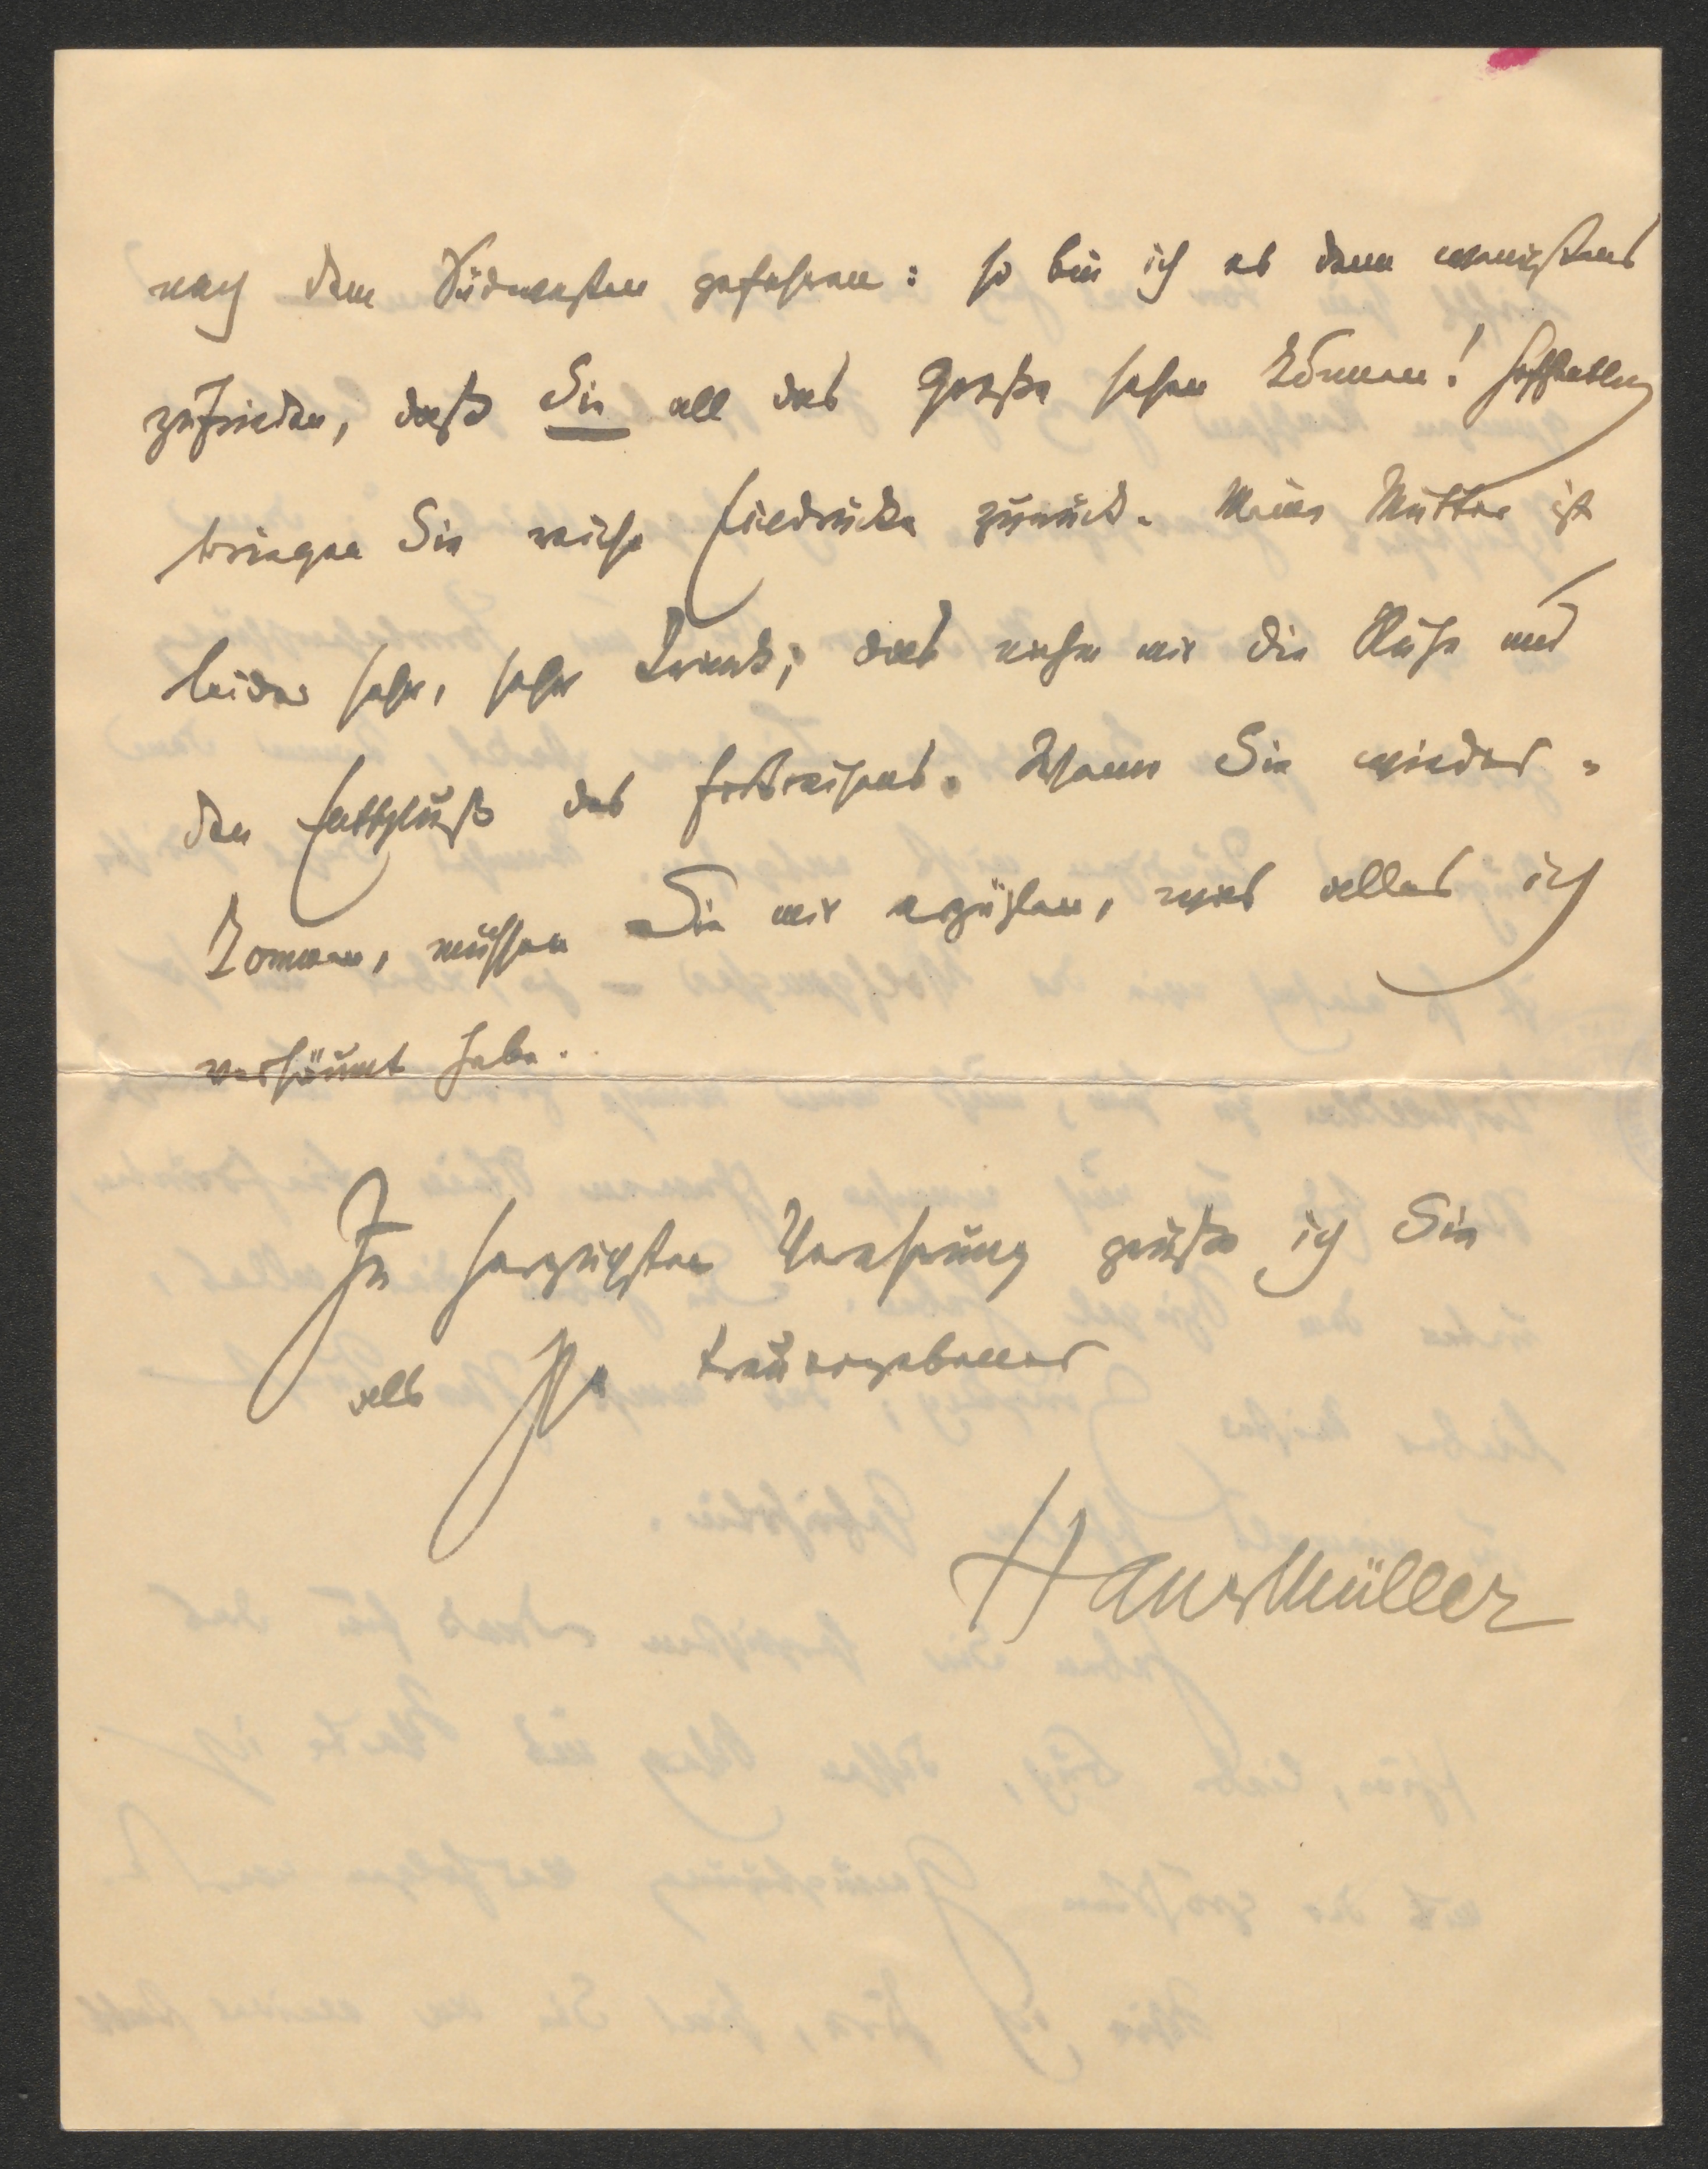 nach dem Südwesten gefahren: so bin ich es denn wenigstens
zufrieden, daß Sie all das Große sehen können! Hoffentlich
bringen Sie reiche Eindrücke zurück. Meine Mutter ist
leider sehr, sehr krank; das nahm mir die Ruhe und
den Entschluß des Fortreisens. Wenn Sie wieder-
kommen, müssen Sie mir erzählen, was alles ich
versäumt habe.
In herzlichster Verehrung grüße ich Sie
als Ihr treuergebener
Hans Müller